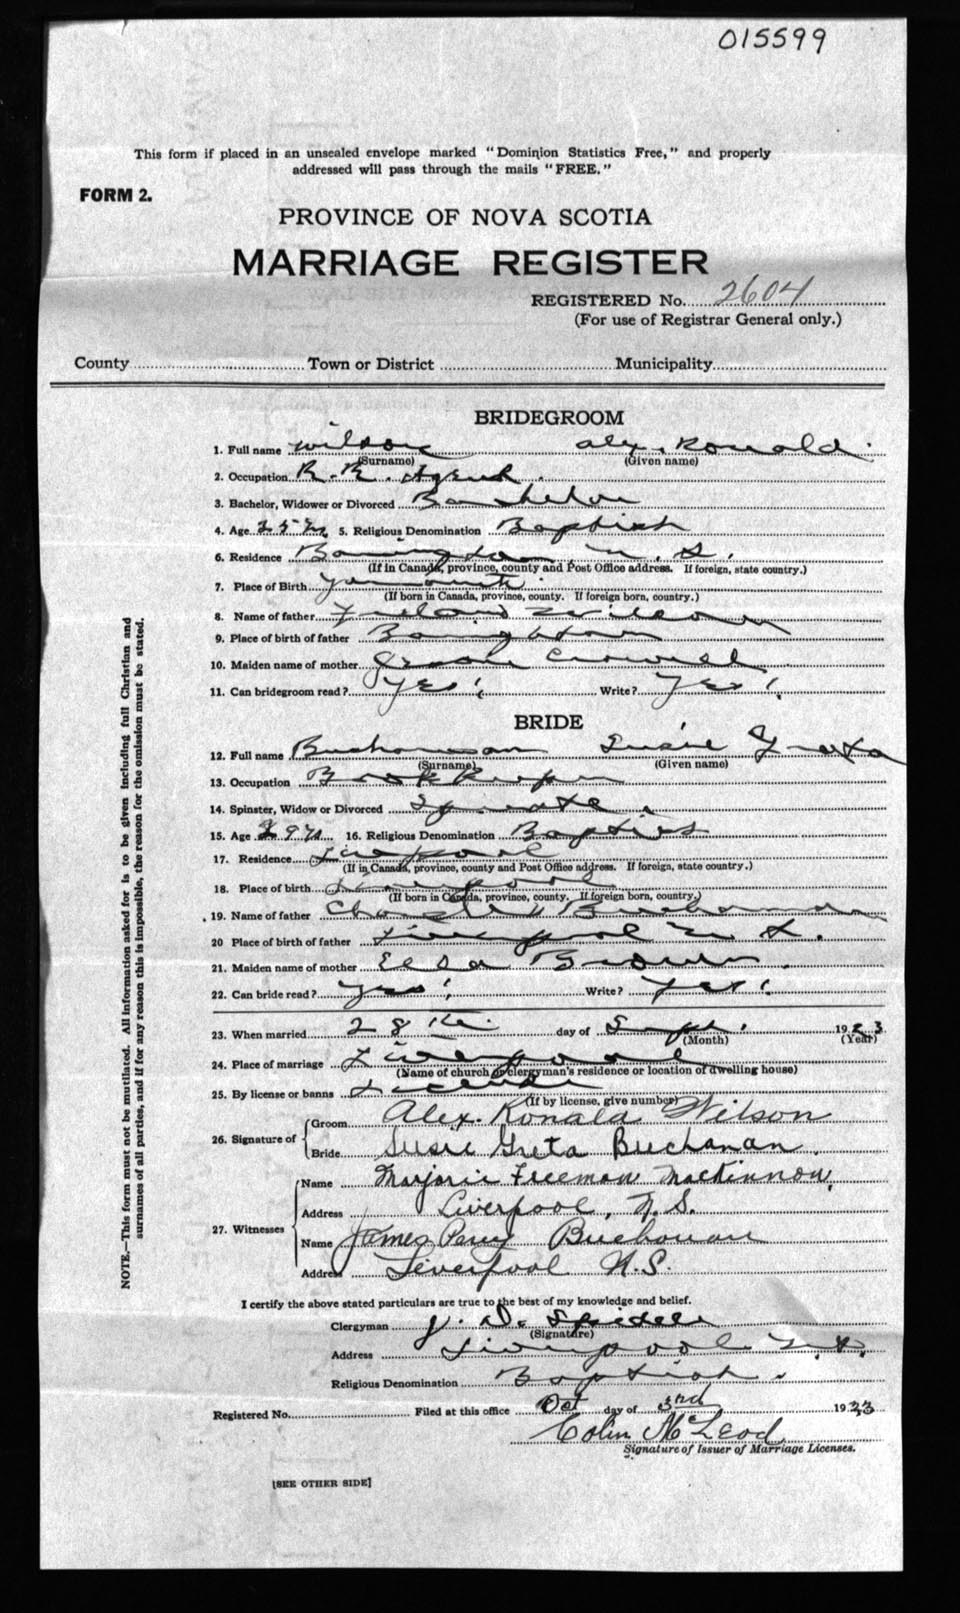 015599
This form if placed in an unsealed envelope marked "Dominion Statistics Free," and properly
addressed will pass through the mails "FREE."
FORM 2.
PROVINCE OF NOVA SCOTIA
MARRIAGE REGISTER
REGISTERED No. 2604
(For use of Registrar General only.)
County Town or District Municipality
BRIDEGROOM
1. Full name Wilson Alex. Ronald
(Surname) (Given name)
2. Occupation R. R. Agent.
3. Bachelor, Widower or Divorced Bachelor
4. Age 25 5. Religious Denomination Baptist
6. Residence Barrington N. S.
(If in Canada, province, county and Post Office address. If foreign, state country.)
7. Place of Birth Yarmouth
(If born in Canada, province, county. If foreign born, country.)
8. Name of father Wilson
9. Place of birth of father Barrington
10. Maiden name of mother Crowell
11. Can bridegroom read? Yes! Write? Yes!
BRIDE
12. Full name Buchanan Susie Greta
(Surname) (Given name)
13. Occupation Book Keeper
14. Spinster, Widow or Divorced
15. Age 29 16. Religious Denomination Baptist
17. Residence Liverpool
(If in Canada, province, county and Post Office address. If foreign, state country.)
18. Place of birth Liverpool
(If born in Canada, province, county. If foreign born, country.)
19. Name of father Charles Buchanan
20 Place of birth of father Liverpool N. S.
21. Maiden name of mother Brown
22. Can bride read? Yes! Write? Yes!
23. When married 28th day of Sept. 1923
(Month) (Year)
24. Place of marriage Liverpool
(Name of church or clergyman's residence or location of dwelling house)
25. By license or banns License
(If by license, give number)
26. Signature of Groom Alex. Ronald Wilson
Bride Susie Greta Buchanan.
27. Witnesses Name Marjorie Freeman MacKinnon,
Address Liverpool, N.S.
Name James Percy Buchanan
Address Liverpool N.S.
I certify the above stated particulars are true to the best of my knowledge and belief.
Clergyman J. D. Spidell
(Signature)
Address Liverpool N.S.
Religious Denomination Baptist.
Registered No. Filed at this office Oct day of 3rd 1923
Colin McLeod
Signature of Issuer of Marriage Licenses.
[SEE OTHER SIDE]
NOTE.—This form must not be mutilated. All information asked for is to be given including full Christian and
surnames of all parties, and if for any reason this is impossible, the reason for the omission must be stated.